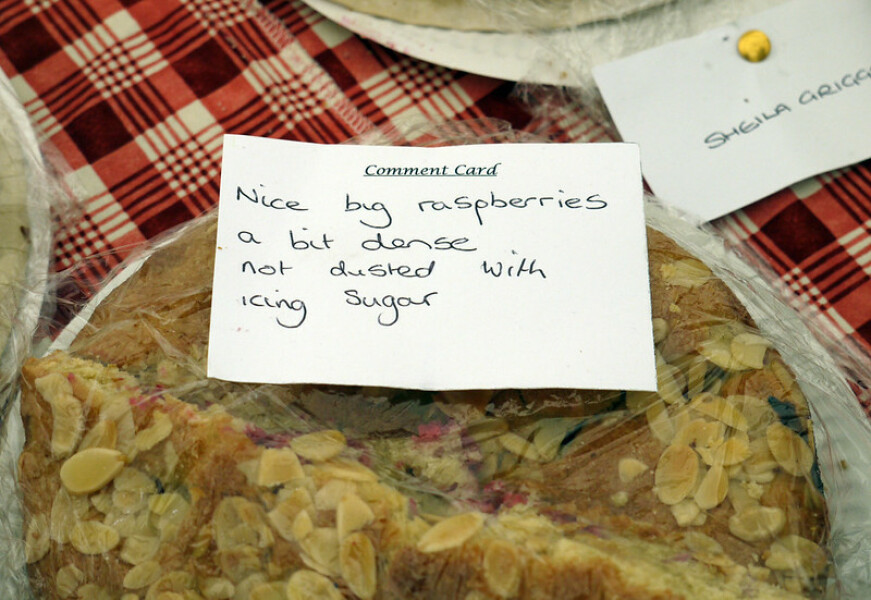 Comment Card
Nice big raspberries
a bit dense
not dusted with
icing sugar
SHEILA